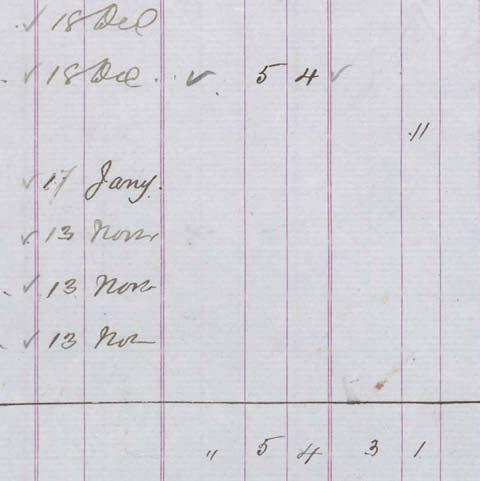 ✓ 18 Dec
✓ 18 Dec. ✓ 5 4 ✓
"
✓ 17 Jany.
✓ 13 Novr
✓ 13 Novr
✓ 13 Nov
" 5 4 3 1